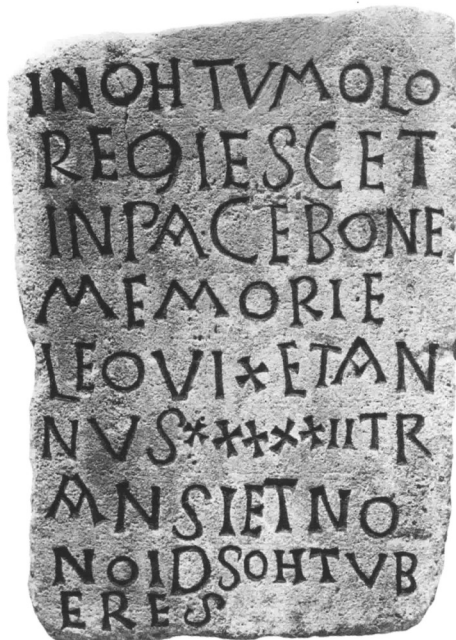 INOHTVMOLO
REQIESCET
INPACEBONE
MEMORIE
LEOVIXETAN
NVSXXXXXIITR
ANSIETNO
NOIDSOHTVB
ERES